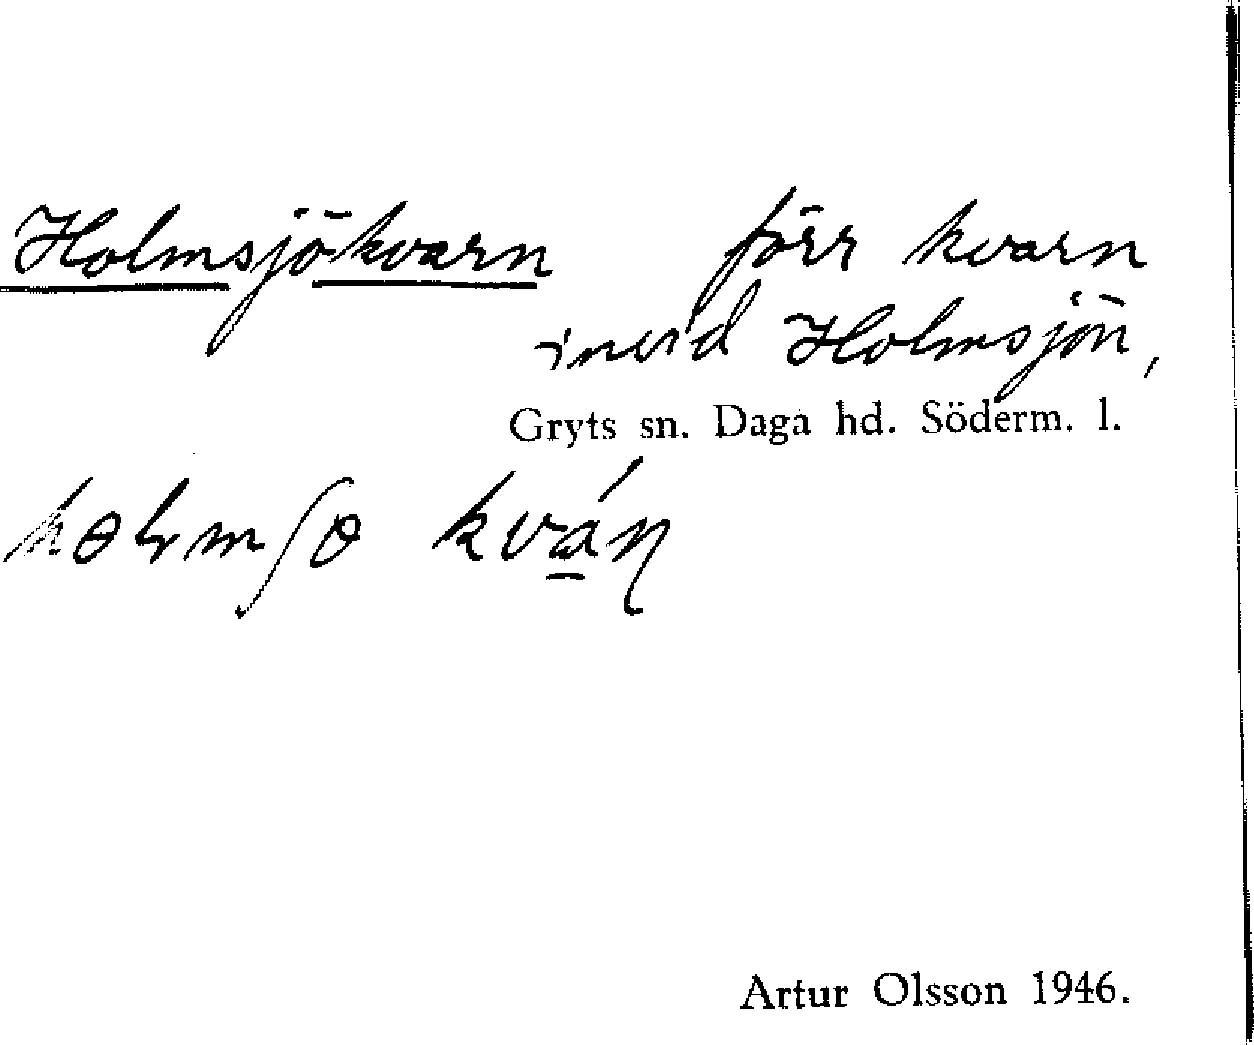 Holmsjökvarn förr kvarn
invid Holmsjön,
Gryts sn. Daga hd. Söderm. l.
Artur Olsson 1946.